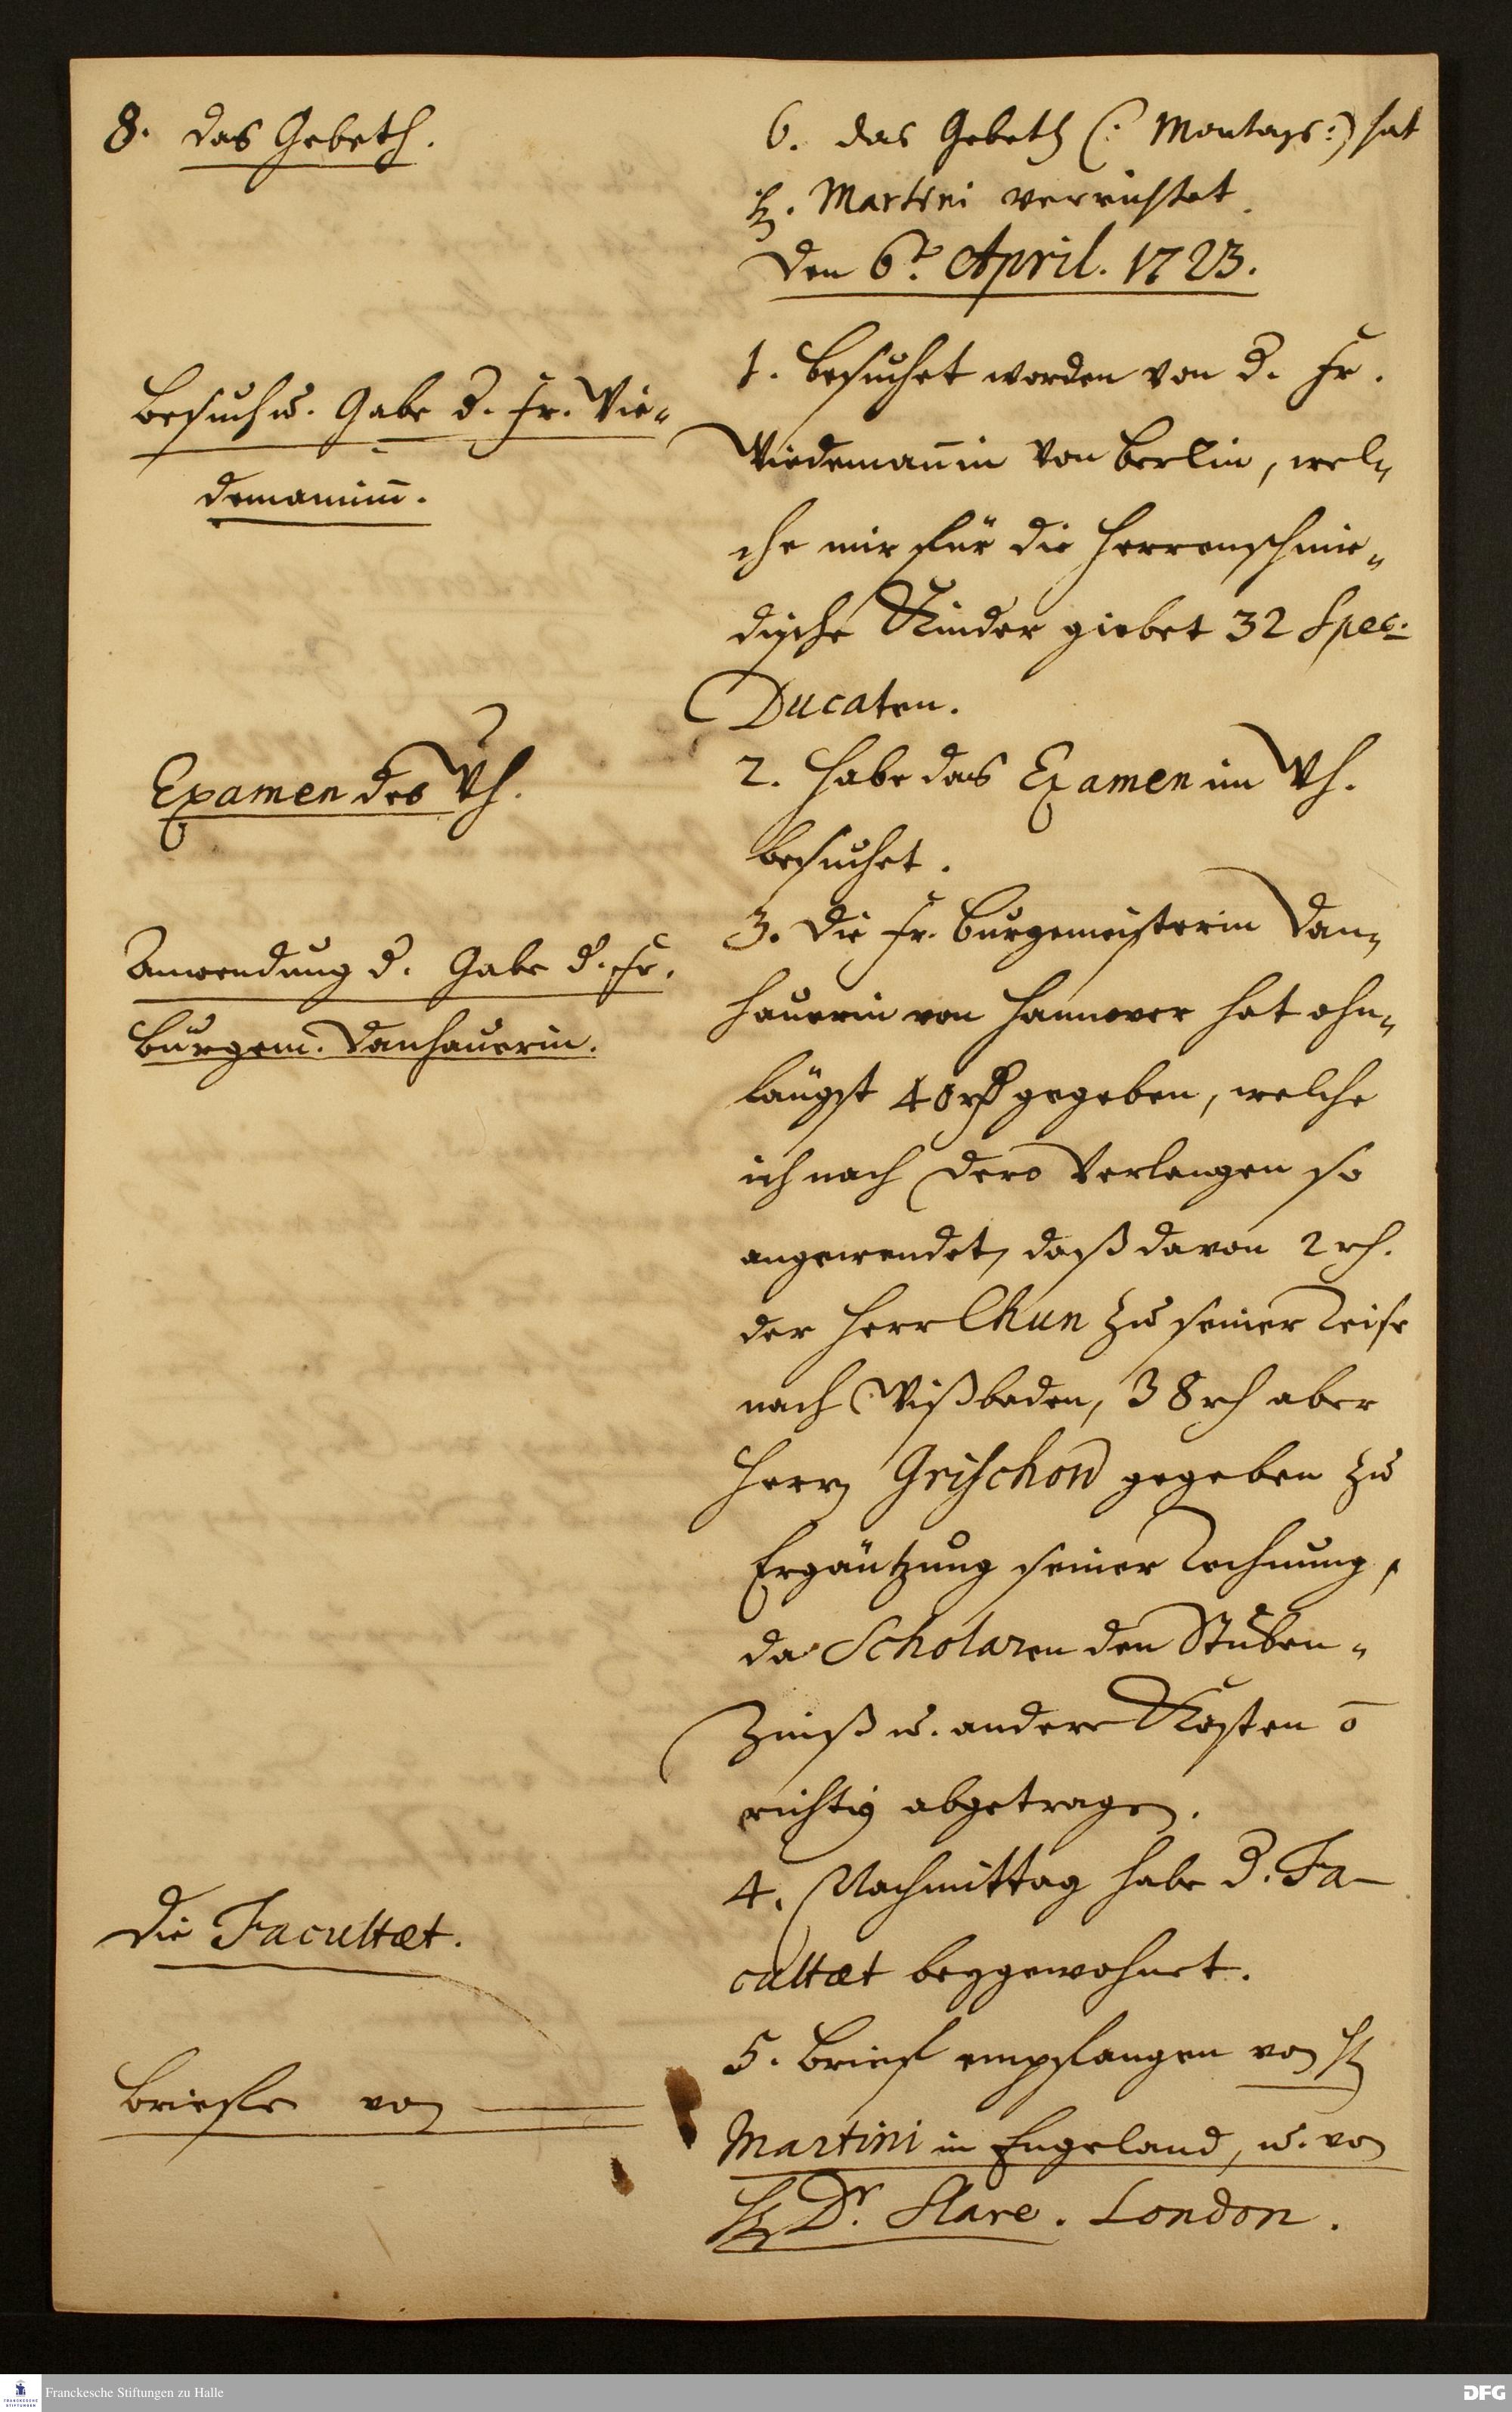 8. das Gebeth.
6. das Gebeth (: Montags :) hat
H. Martini verrichtet.
Den 6t. April. 1723.
Besuch u. Gabe d. Fr. Wie-
demannin.
1. Besuchet worden von d. Fr.
Wiedemannin von Berlin, wel-
che mir für die Herrenschmie-
dische Kinder giebet 32 Spec.
Ducaten.
Examen des Wh.
2. Habe das Examen im Wh.
besuchet.
Anwendung d. Gabe d. Fr.
Burgem. Danhauerin.
3. Die Fr. Burgemeisterin Dan-
hauerin von Hannover hat ohn-
längst 40 rh gegeben, welche
ich nach dero Verlangen so
angewendet, daß davon 2 rh.
der Herr Chun zu seiner Reise
nach Wißbaden, 38 rh aber
Herrn Grischow gegeben zu
Ergäntzung seiner Rechnung,
da Scholaren den Stuben-
Zinß u. andere Kosten ō
richtig abgetragen.
Die Facultæt.
4. Nachmittag habe d. Fa-
cultæt beygewohnet.
Briefe von
5. Brief empfangen von H
Martini in Engeland, u. von
H Dr. Slare. London.
Franckesche Stiftungen zu Halle
DFG